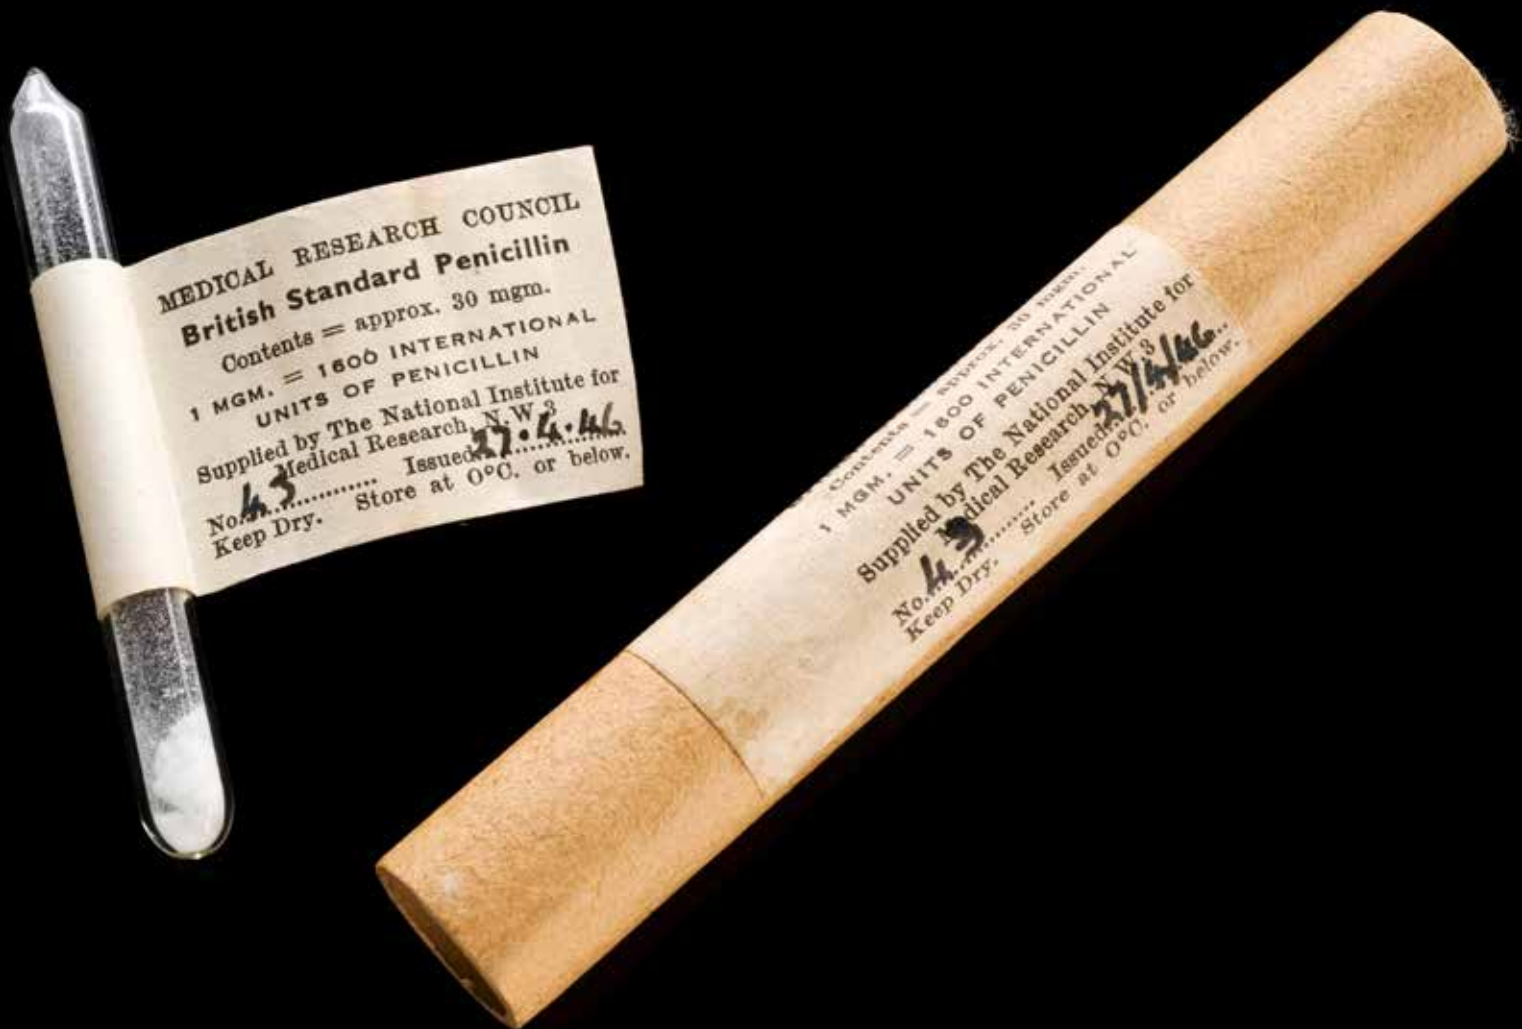 MEDICAL RESEARCH COUNCIL
British Standard Penicillin
Contents = approx. 30 mgm.
1 MGM. = 1600 INTERNATIONAL
UNITS OF PENICILLIN
Supplied by The National Institute for
Medical Research, N.W.3
No. 43 Issued 27.4.46
Keep Dry. Store at 0°C. or below.
Contents = approx. 30 mgm.
1 MGM. = 1600 INTERNATIONAL
UNITS OF PENICILLIN
Supplied by The National Institute for
Medical Research, N.W.3
No. 43 Issued 27/4/46
Keep Dry. Store at 0°C. or below.